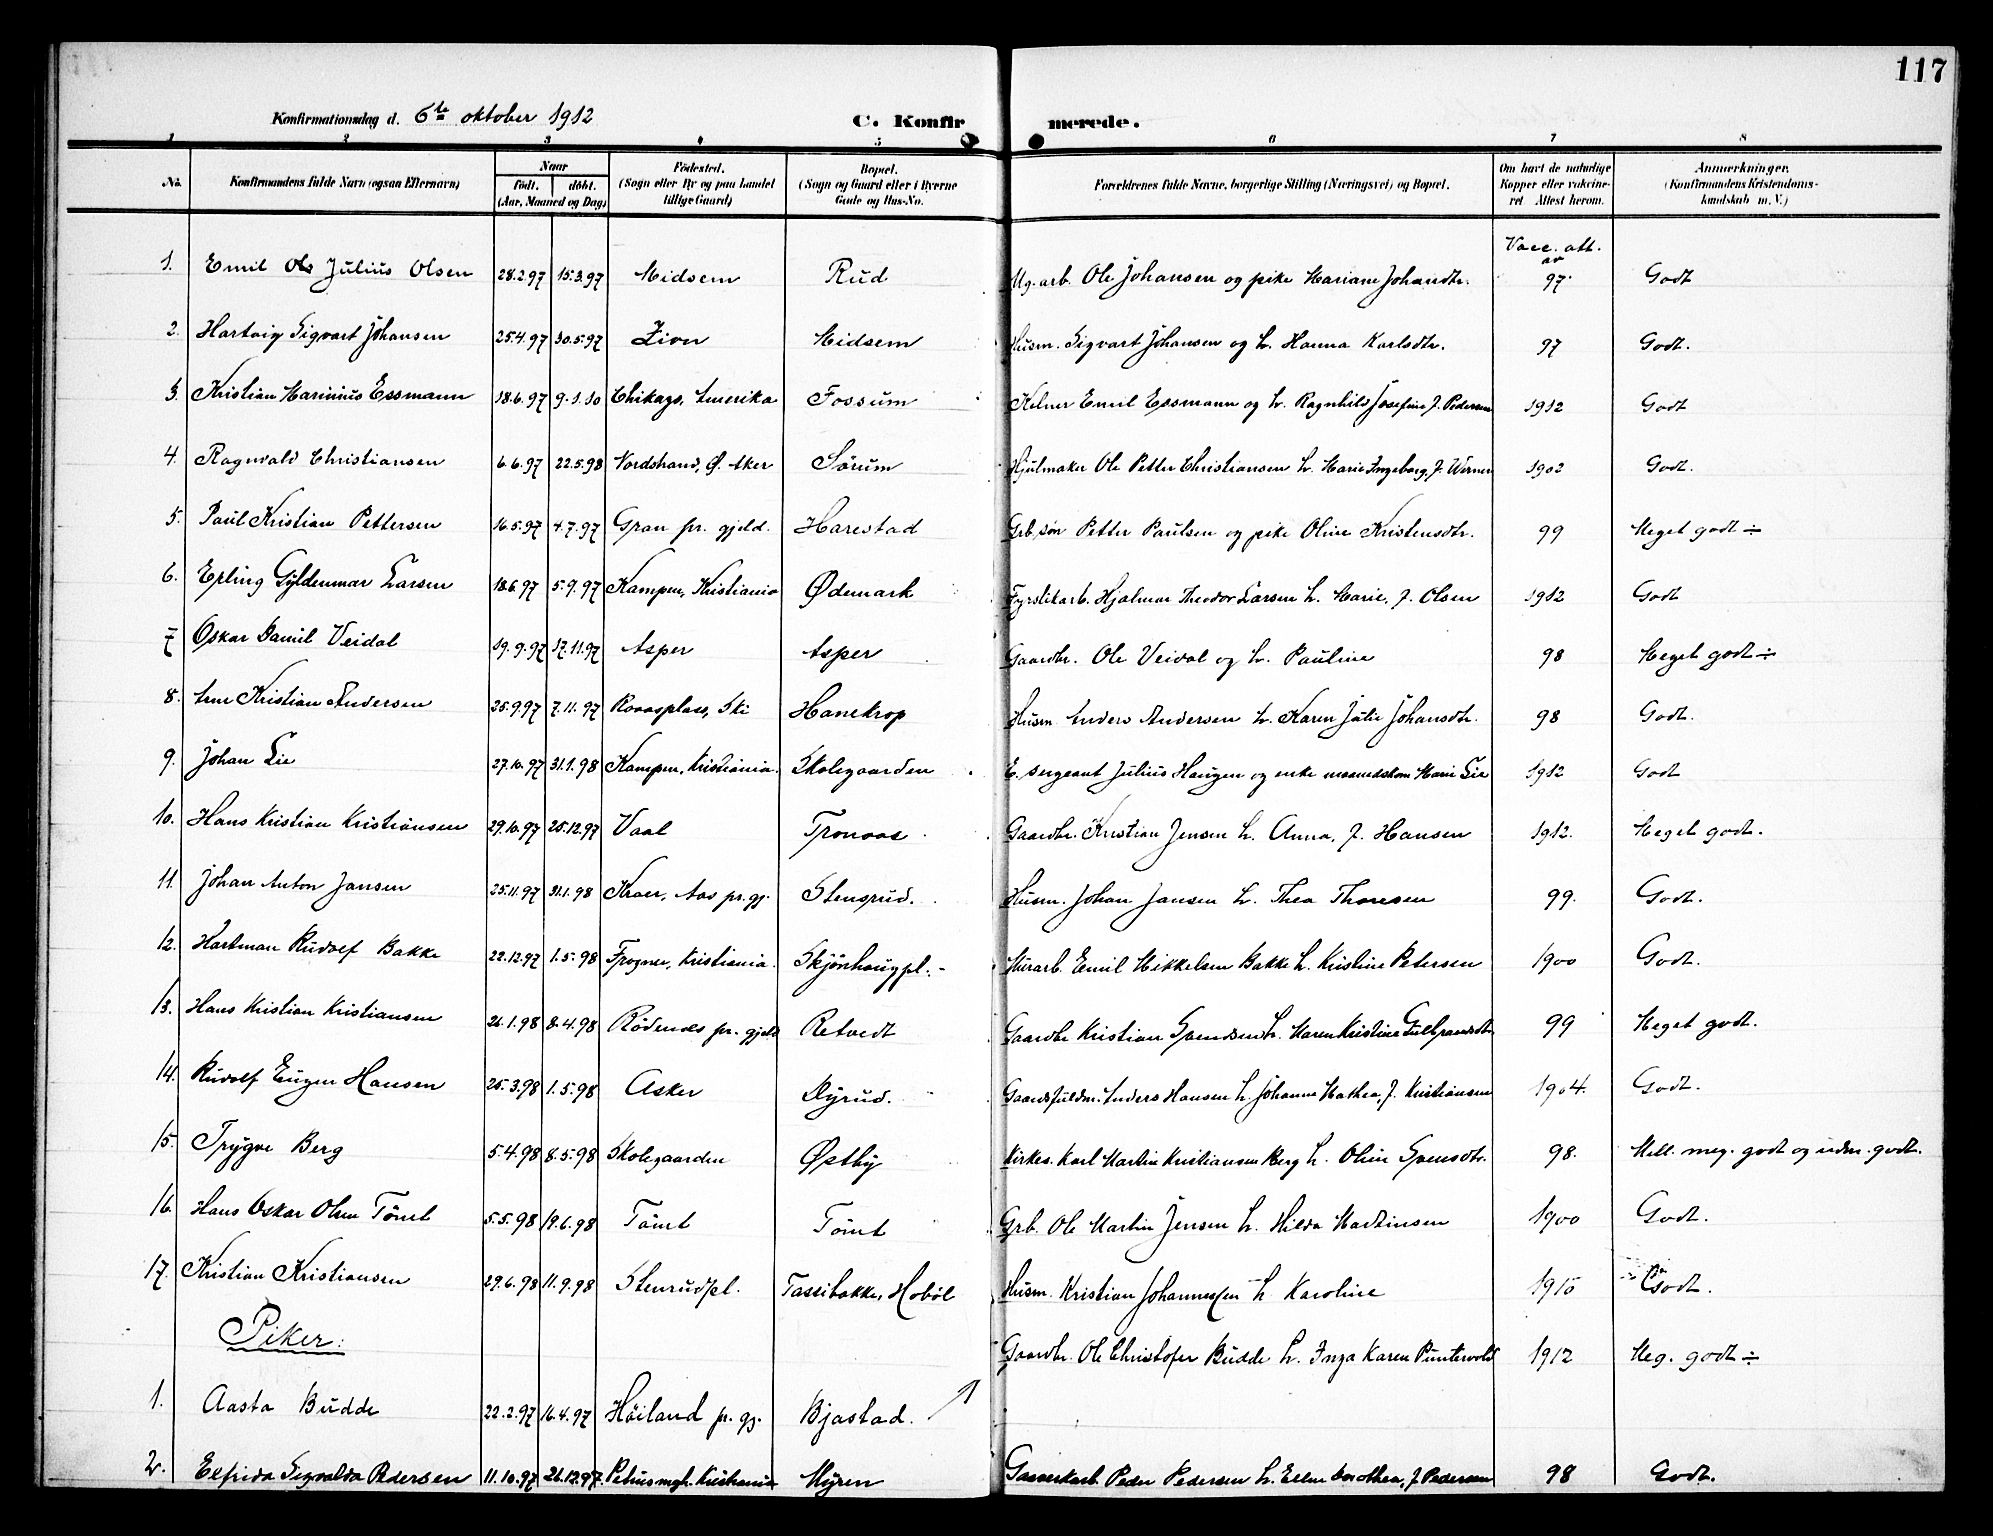 117
Konfirmationsdag d. 6te oktober 1912
C. Konfirmerede.
1 2 3 4 5 6 7 8
No. Konfirmandens fulde Navn (ogsaa Efternavn) Naar født. døbt. (Aar, Maaned og Dag) Fødested. (Sogn eller By og paa Landet tillige Gaard) Bopæl. (Sogn og Gaard eller i Byerne Gade og Hus-No. Forældrenes fulde Navne, borgerlige Stilling (Næringsvei) og Bopæl. Om havt de naturlige Kopper eller vakcineret Attest herom. Anmærkninger. (Konfirmandens Kristendomskundskab m. V.)
Vacc. att. av
1. Emil Ole Julius Olsen 28.2.97 15.3.97 Midsem Rud Ug. arb. Ole Johansen og pike Mariane Johansdtr. 97 Godt
2. Hartvig Sigvart Johansen 25.4.97 30.5.97 Zion Midsem Husm. Sigvart Johansen og h. Hanna Karlsdtr. 97 Godt.
3. Kristian Marinius Essmann 18.6.97 9.1.10 Chikago, Amerika Fossum Kelner Emil Essmann og h. Ragnhild Josefine f. Pedersen 1912 Godt
4. Ragnvald Christiansen 6.6.97 22.5.98 Nordstrand, Ø. Aker Sørum Hjulmaker Ole Petter Christiansen h. Marie Ingeborg, f. Werner 1902 Godt.
5. Paul Kristian Pettersen 16.5.97 4.7.97 Gran pr. gjeld. Harestad Grb. søn Petter Paulsen og pike Oline Kristensdtr. 99 Meget godt ÷
6. Erling Gyldenmar Larsen 18.6.97 5.9.97 Kampen, Kristiania Ødemark Fyrstikarb. Hjalmar Theodor Larsen h. Marie, f. Olsen 1912 Godt
7 Oskar Daniel Veidal 19.9.97 17.11.97 Asper Asper Gaardbr. Ole Veidal og h. Pauline 98 Meget godt ÷
8. Arne Kristian Andersen 25.9.97 7.11.97 Roaasplass, Ski Hanekrop Husm Anders Andersen h. Karen Julie Johansdtr. 98 Godt.
9. Johan Lie 27.10.97 31.1.98 Kampen, Kristiania. Skolegaarden E. sergeant Julius Haugen og enke Marie Lie 1912 Godt
10. Hans Kristian Kristiansen 29.10.97 25.12.97 Vaal Tronaas Gaardbr. Kristian Jensen h. Anna, f. Hansen 1912. Meget godt.
11. Johan Anton Jansen 25.11.97 31.1.98 Kraer, Aas pr. gj. Stensrud. Husm. Johan Jansen h. Thea Thoresen 99. Godt.
12. Hartman Rudolf Bakke 22.12.97 1.5.98 Frogner, Kristiania. Skjønhaugpl. Murarb. Emil Mikkelsen Bakke h. Kristine Petersen 1900 Godt.
13. Hans Kristian Kristiansen 26.1.98 8.4.98 Rødenes pr. gjeld Retvedt Gaardbr Kristian Svendsen h. Karen Kristine Gulbrandsdtr 99 Meget godt.
14. Rudolf Eugen Hansen 25.3.98 1.5.98 Asker Dyrud. Gaardsfuldm. Anders Hansen h. Johanne Mathea, f. Kristiansen 1904. Godt.
15. Trygve Berg 5.4.98 8.5.98 Skolegaarden Østby Kirkes. Karl Martin Kristiansen Berg h. Oline Svensdtr. 98. Mell. meg. godt og udm. godt.
16. Hans Oskar Olsen Tømt 5.5.98 19.6.98 Tømt Tømt Grb. Ole Martin Jensen h. Hilda Martinsen 1900 Godt.
17. Kristian Kristiansen 29.6.98 11.9.98 Stenrudpl. Tassebakke, Hobøl Husm. Kristian Johannessen h Karoline 1910 Godt.
Piker:
Gaardbr. Ole Christofer Budde h. Inga Karen Puntervold 1912 Meg. godt ÷
1. Aasta Budde 22.2.97 16.4.97 Høiland pr. gj. Bjastad.
2. Elfrida Sigvalda Pedersen 11.10.97 26.12.97 Petrus mgh. Kristiania Myren Gasverkarb. Peder Pedersen h. Elen Dorothea, f. Pedersen 98 Godt.